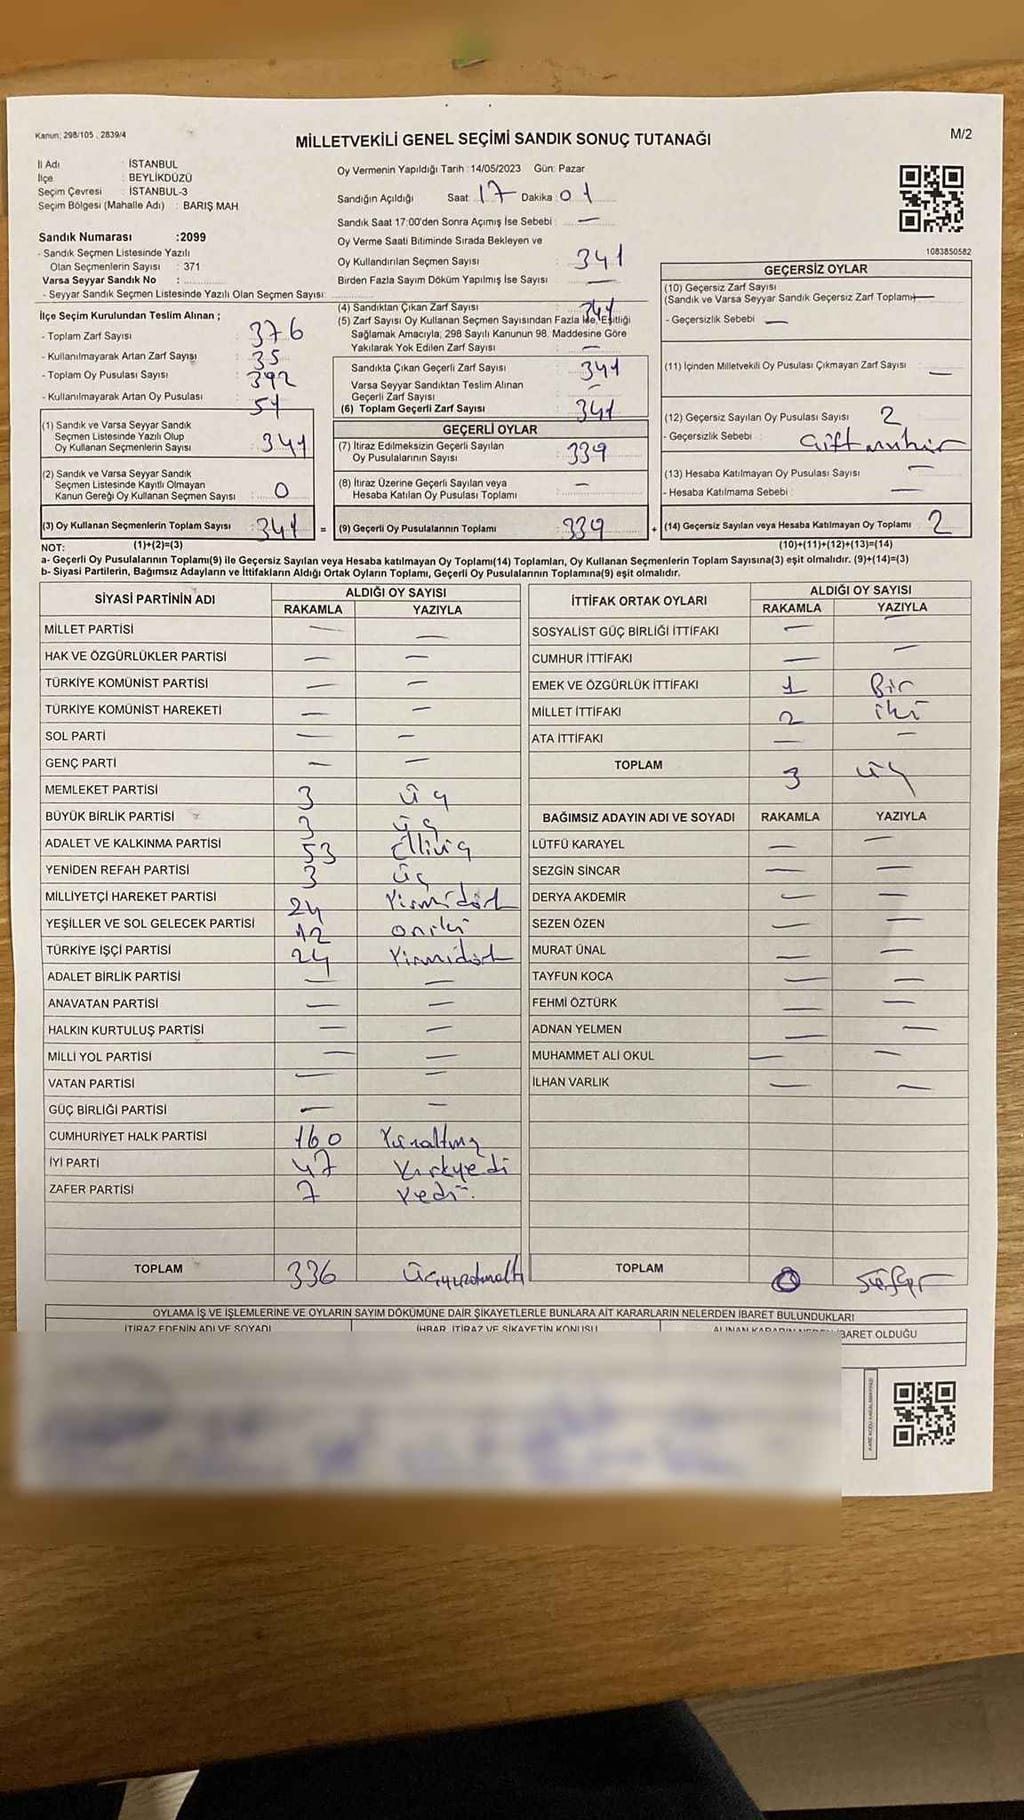 Kanun: 298/105 , 2839/4
MİLLETVEKİLİ GENEL SEÇİMİ SANDIK SONUÇ TUTANAĞI
M/2
İl Adı : İSTANBUL
İlçe : BEYLİKDÜZÜ
Seçim Çevresi : İSTANBUL-3
Seçim Bölgesi (Mahalle Adı) : BARIŞ MAH
Sandık Numarası :2099
- Sandık Seçmen Listesinde Yazılı
Olan Seçmenlerin Sayısı : 371
Varsa Seyyar Sandık No :
- Seyyar Sandık Seçmen Listesinde Yazılı Olan Seçmen Sayısı:
Oy Vermenin Yapıldığı Tarih : 14/05/2023 Gün: Pazar
Sandığın Açıldığı Saat: 17 Dakika: 01
Sandık Saat 17:00'den Sonra Açımış İse Sebebi : —
Oy Verme Saati Bitiminde Sırada Bekleyen ve
Oy Kullandırılan Seçmen Sayısı : 341
Birden Fazla Sayım Döküm Yapılmış İse Sayısı : —
1083850582
İlçe Seçim Kurulundan Teslim Alınan ;
- Toplam Zarf Sayısı : 376
- Kullanılmayarak Artan Zarf Sayısı : 35
- Toplam Oy Pusulası Sayısı : 392
- Kullanılmayarak Artan Oy Pusulası : 51
(1) Sandık ve Varsa Seyyar Sandık
Seçmen Listesinde Yazılı Olup
Oy Kullanan Seçmenlerin Sayısı : 341
(2) Sandık ve Varsa Seyyar Sandık
Seçmen Listesinde Kayıtlı Olmayan
Kanun Gereği Oy Kullanan Seçmen Sayısı : 0
(3) Oy Kullanan Seçmenlerin Toplam Sayısı : 341 =
(4) Sandıktan Çıkan Zarf Sayısı : 341
(5) Zarf Sayısı Oy Kullanan Seçmen Sayısından Fazla İse, Eşitliği
Sağlamak Amacıyla, 298 Sayılı Kanunun 98. Maddesine Göre
Yakılarak Yok Edilen Zarf Sayısı : —
Sandıkta Çıkan Geçerli Zarf Sayısı : 341
Varsa Seyyar Sandıktan Teslim Alınan
Geçerli Zarf Sayısı : —
(6) Toplam Geçerli Zarf Sayısı : 341
GEÇERLİ OYLAR
(7) İtiraz Edilmeksizin Geçerli Sayılan
Oy Pusulalarının Sayısı : 339
(8) İtiraz Üzerine Geçerli Sayılan veya
Hesaba Katılan Oy Pusulası Toplamı : —
(9) Geçerli Oy Pusulalarının Toplamı : 339 +
GEÇERSİZ OYLAR
(10) Geçersiz Zarf Sayısı
(Sandık ve Varsa Seyyar Sandık Geçersiz Zarf Toplamı) —
- Geçersizlik Sebebi : —
(11) İçinden Milletvekili Oy Pusulası Çıkmayan Zarf Sayısı : —
(12) Geçersiz Sayılan Oy Pusulası Sayısı : 2
- Geçersizlik Sebebi :
(13) Hesaba Katılmayan Oy Pusulası Sayısı : —
- Hesaba Katılmama Sebebi : —
(14) Geçersiz Sayılan veya Hesaba Katılmayan Oy Toplamı : 2
NOT: (1)+(2)=(3) (10)+(11)+(12)+(13)=(14)
a- Geçerli Oy Pusulalarının Toplamı(9) ile Geçersiz Sayılan veya Hesaba katılmayan Oy Toplamı(14) Toplamları, Oy Kullanan Seçmenlerin Toplam Sayısına(3) eşit olmalıdır. (9)+(14)=(3)
b- Siyasi Partilerin, Bağımsız Adayların ve İttifakların Aldığı Ortak Oyların Toplamı, Geçerli Oy Pusulalarının Toplamına(9) eşit olmalıdır.
SİYASİ PARTİNİN ADI ALDIĞI OY SAYISI
RAKAMLA YAZIYLA
MİLLET PARTİSİ — —
HAK VE ÖZGÜRLÜKLER PARTİSİ — —
TÜRKİYE KOMÜNİST PARTİSİ — —
TÜRKİYE KOMÜNİST HAREKETİ — —
SOL PARTİ — —
GENÇ PARTİ — —
MEMLEKET PARTİSİ 3 üç
BÜYÜK BİRLİK PARTİSİ 3 üç
ADALET VE KALKINMA PARTİSİ 53 Elliüç
YENİDEN REFAH PARTİSİ 3 üç
MİLLİYETÇİ HAREKET PARTİSİ 24 Yirmidört
YEŞİLLER VE SOL GELECEK PARTİSİ 12 oniki
TÜRKİYE İŞÇİ PARTİSİ 24 Yirmidört
ADALET BİRLİK PARTİSİ — —
ANAVATAN PARTİSİ — —
HALKIN KURTULUŞ PARTİSİ — —
MİLLİ YOL PARTİSİ — —
VATAN PARTİSİ — —
GÜÇ BİRLİĞİ PARTİSİ — —
CUMHURİYET HALK PARTİSİ 160 Yüzaltmış
İYİ PARTİ 47 Kırkyedi
ZAFER PARTİSİ 7 Yedi
TOPLAM 336 Üçyüzotuzaltı
İTTİFAK ORTAK OYLARI ALDIĞI OY SAYISI
RAKAMLA YAZIYLA
SOSYALİST GÜÇ BİRLİĞİ İTTİFAKI — —
CUMHUR İTTİFAKI — —
EMEK VE ÖZGÜRLÜK İTTİFAKI 1 Bir
MİLLET İTTİFAKI 2 iki
ATA İTTİFAKI — —
TOPLAM 3 üç
BAĞIMSIZ ADAYIN ADI VE SOYADI RAKAMLA YAZIYLA
LÜTFÜ KARAYEL — —
SEZGİN SİNCAR — —
DERYA AKDEMİR — —
SEZEN ÖZEN — —
MURAT ÜNAL — —
TAYFUN KOCA — —
FEHMİ ÖZTÜRK — —
ADNAN YELMEN — —
MUHAMMET ALİ OKUL — —
İLHAN VARLIK — —
TOPLAM 0 Sıfır
OYLAMA İŞ VE İŞLEMLERİNE VE OYLARIN SAYIM DÖKÜMÜNE DAİR ŞİKAYETLERLE BUNLARA AİT KARARLARIN NELERDEN İBARET BULUNDUKLARI
İTİRAZ EDENİN ADI VE SOYADI İHBAR, İTİRAZ VE ŞİKAYETİN KONUSU ALINAN KARARIN NEDEN İBARET OLDUĞU